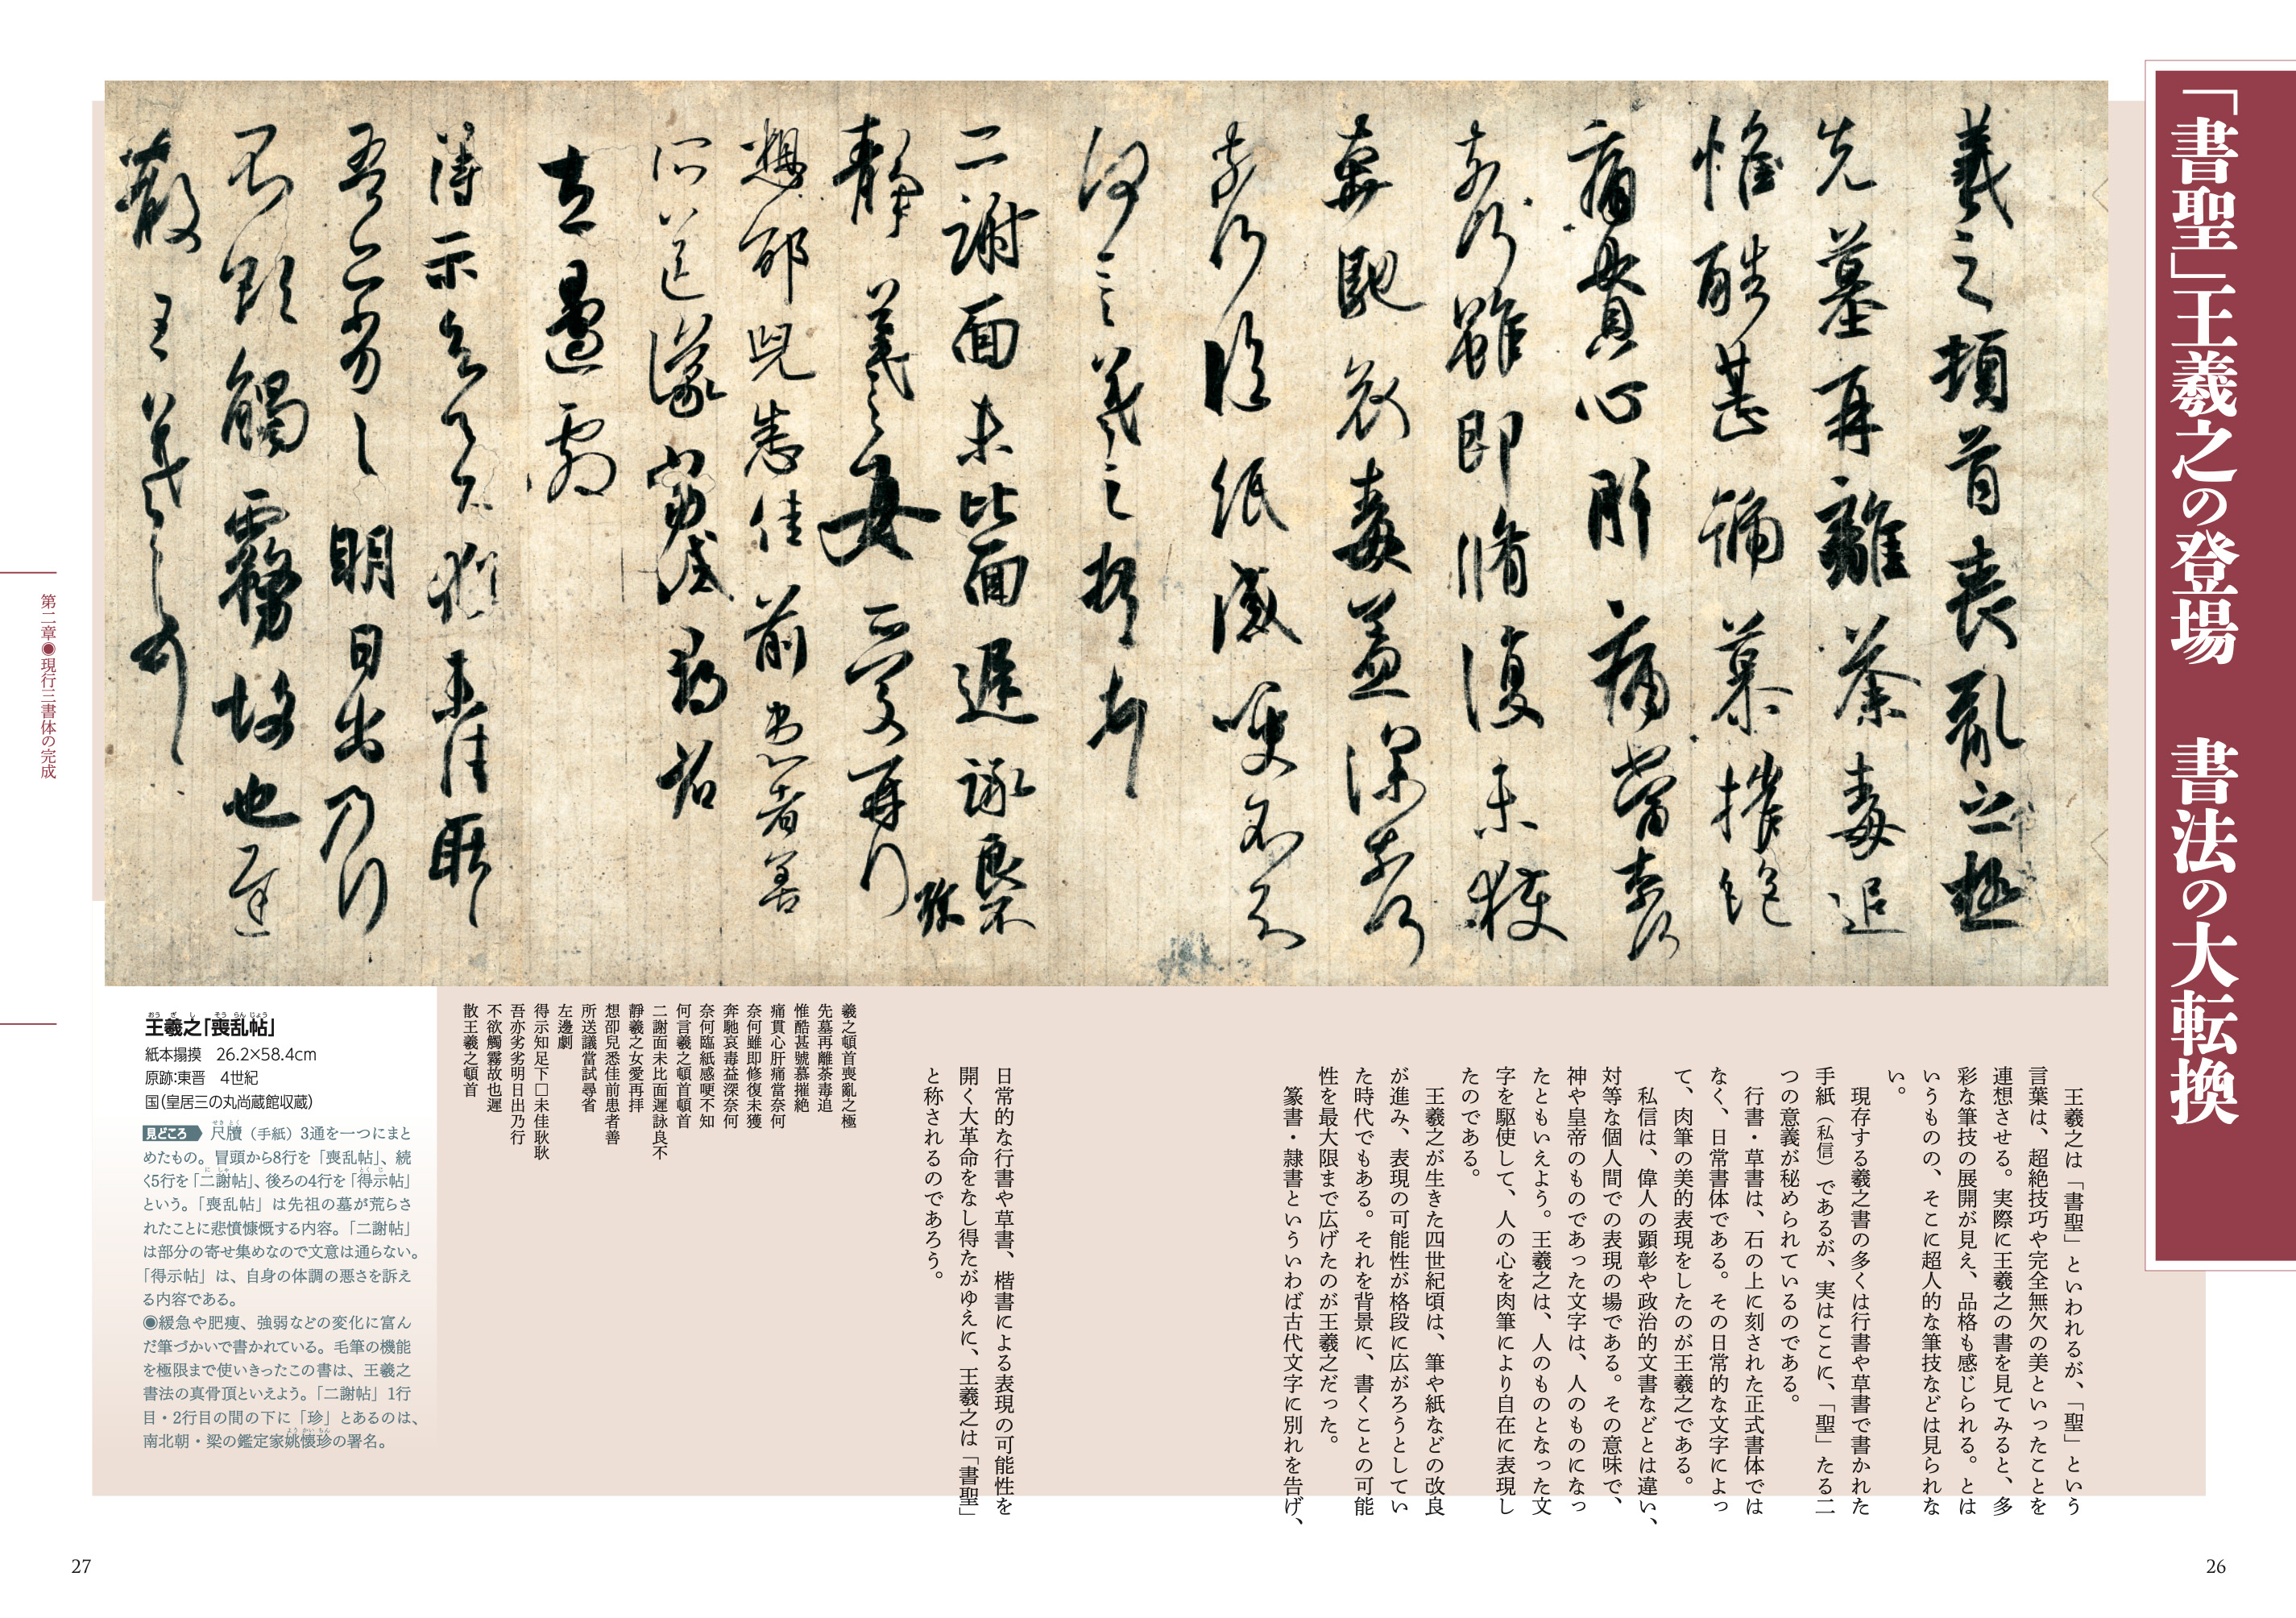 「書聖」王羲之の登場　書法の大転換
羲之頓首喪亂之極
先墓再離荼毒追
惟酷甚號慕摧絶
痛貫心肝痛當奈何
奈何雖即脩復未獲
奔馳哀毒益深奈何
奈何臨紙感哽不知
何言羲之頓首頓首
二謝面未比面遲詠良不
珍
靜羲之女愛再拜
想邵兒悉佳前患者善
所送議當試尋省
左邊劇
得示知足下
未佳耿耿
吾亦劣劣明日出乃行
不欲觸霧故也遲
散王羲之頓首
王羲之は「書聖」といわれるが、「聖」という
言葉は、超絶技巧や完全無欠の美といったことを
連想させる。実際に王羲之の書を見てみると、多
彩な筆技の展開が見え、品格も感じられる。とは
いうものの、そこに超人的な筆技などは見られな
い。
現存する羲之書の多くは行書や草書で書かれた
手紙（私信）であるが、実はここに、「聖」たる二
つの意義が秘められているのである。
行書・草書は、石の上に刻された正式書体では
なく、日常書体である。その日常的な文字によっ
て、肉筆の美的表現をしたのが王羲之である。
私信は、偉人の顕彰や政治的文書などとは違い、
対等な個人間での表現の場である。その意味で、
神や皇帝のものであった文字は、人のものになっ
たともいえよう。王羲之は、人のものとなった文
字を駆使して、人の心を肉筆により自在に表現し
たのである。
王羲之が生きた四世紀頃は、筆や紙などの改良
が進み、表現の可能性が格段に広がろうとしてい
た時代でもある。それを背景に、書くことの可能
性を最大限まで広げたのが王羲之だった。
篆書・隷書といういわば古代文字に別れを告げ、
日常的な行書や草書、楷書による表現の可能性を
開く大革命をなし得たがゆえに、王羲之は「書聖」
と称されるのであろう。
羲之頓首喪亂之極
先墓再離荼毒追
惟酷甚號慕摧絶
痛貫心肝痛當奈何
奈何雖即修復未獲
奔馳哀毒益深奈何
奈何臨紙感哽不知
何言羲之頓首頓首
二謝面未比面遲詠良不
靜羲之女愛再拝
想卲兒悉佳前患者善
所送議當試尋省
左邊劇
得示知足下□未佳耿耿
吾亦劣劣明日出乃行
不欲觸霧故也遲
散王羲之頓首
王羲之「喪乱帖」
おうぎし　そうらんじょう
紙本搨摸　26.2×58.4cm
原跡:東晋　4世紀
国(皇居三の丸尚蔵館収蔵)
見どころ　尺牘（手紙）3通を一つにまと
せきとく
めたもの。冒頭から8行を「喪乱帖」、続
く5行を「二謝帖」、後ろの4行を「得示帖」
にしゃ　とくじ
という。「喪乱帖」は先祖の墓が荒らさ
れたことに悲憤慷慨する内容。「二謝帖」
は部分の寄せ集めなので文意は通らない。
「得示帖」は、自身の体調の悪さを訴え
る内容である。
◉緩急や肥痩、強弱などの変化に富ん
だ筆づかいで書かれている。毛筆の機能
を極限まで使いきったこの書は、王羲之
書法の真骨頂といえよう。「二謝帖」1行
目・2行目の間の下に「珍」とあるのは、
南北朝・梁の鑑定家姚懐珍の署名。
ようかいちん
第二章◉現行三書体の完成
27
26